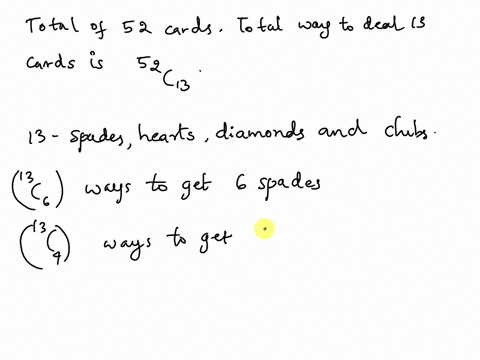 Total of 52 cards. Total way to deal 13
cards is 52C13.
13 - spades, hearts, diamonds and clubs.
(13C6) ways to get 6 spades
(13C4) ways to get